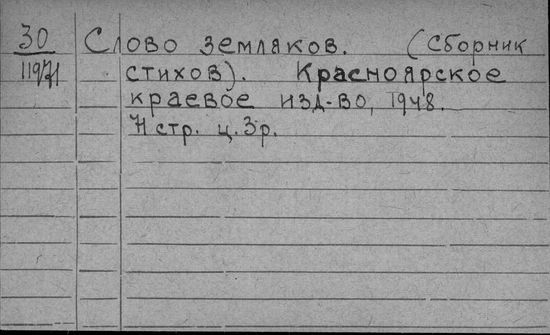 30 Слово земляков. (Сборник
стихов). Красноярское
краевое изд-во, 1948.
стр. ц. 3р.